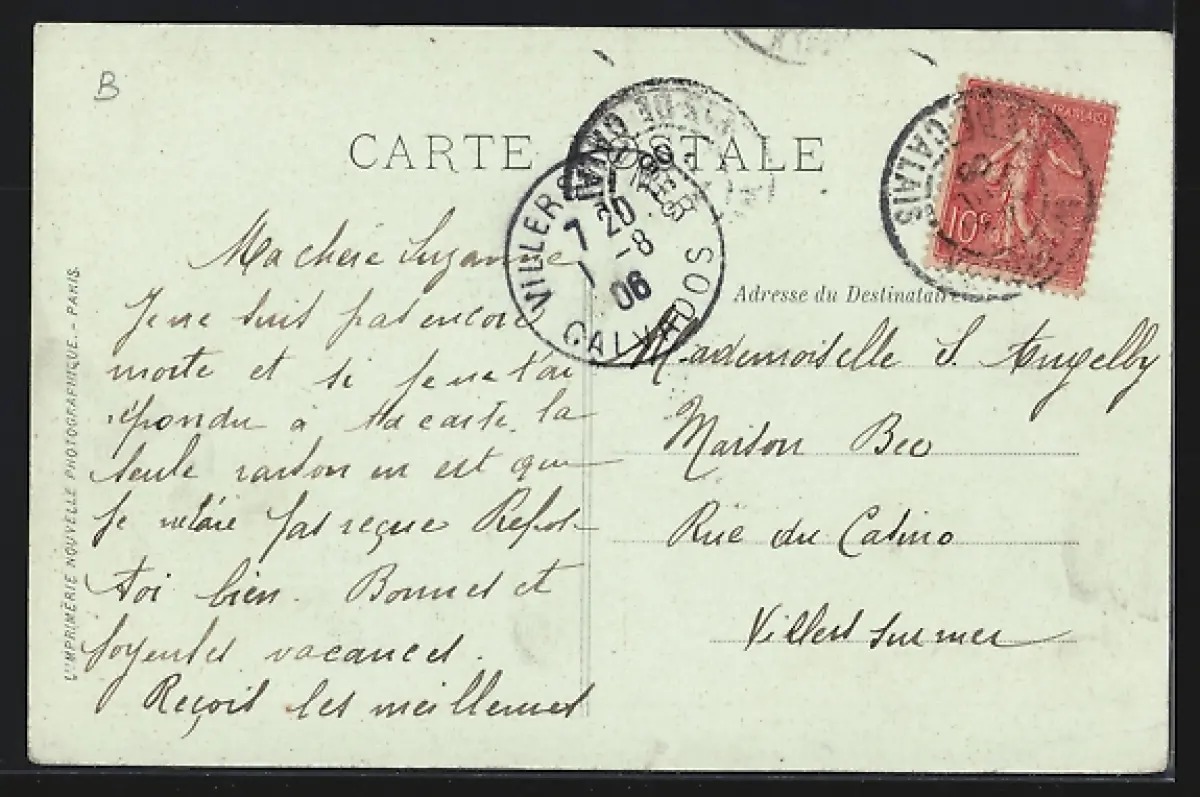 B
CARTE POSTALE
L'IMPRIMERIE NOUVELLE PHOTOGRAPHIQUE. - PARIS.
PAS-DE-CALAIS
VILLERS
7 20
1 -8
06
CALVADOS
DE-CALAIS
FRANÇAISE
10c
Adresse du Destinataire
Ma chère Suzanne
Je ne suis pas encore
morte et si je ne t'ai
répondu à ta carte, la
seule raison en est que
je ne l'aie pas reçue Repos-
toi bien. Bonnes et
joyeuses vacances.
Reçois les meilleures
Mademoiselle S. Angelby
Maison Beo
Rue du Casino
Villers sur mer